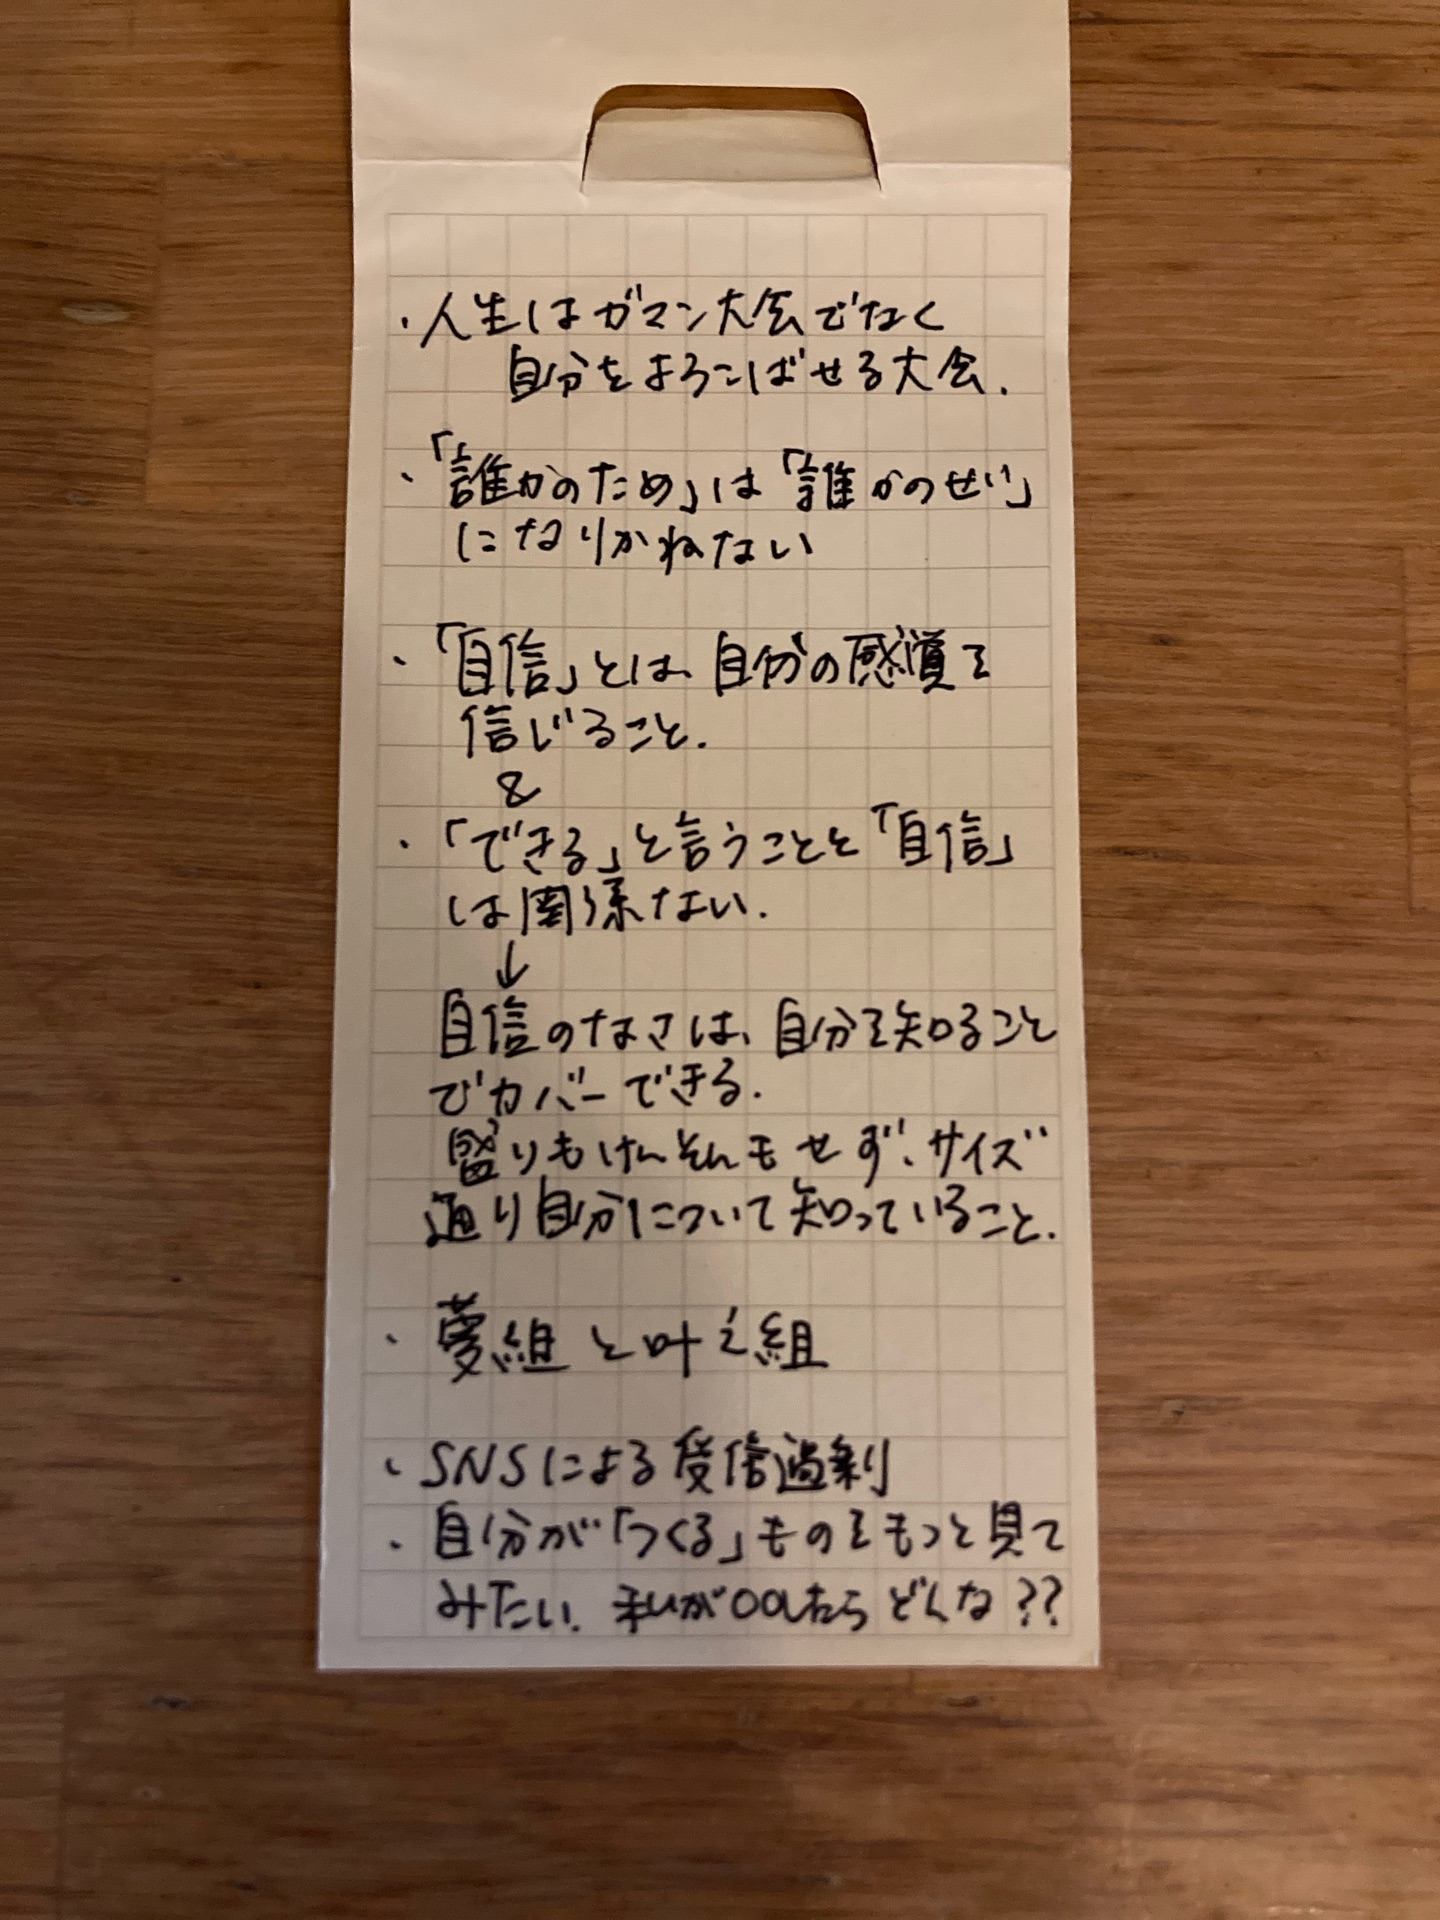 ・人生はガマン大会でなく
自分をよろこばせる大会.
・「誰かのため」は「誰かのせい」
になりかねない
・「自信」とは、自分の感覚を
信じること.
&
・「できる」と言うことと「自信」
は関係ない.
↓
自信のなさは、自分を知ること
でカバーできる.
盛りもけんそんもせず、サイズ
通り自分について知っていること.
・夢組と叶え組
・SNSによる受信過剰
・自分が「つくる」ものをもっと見て
みたい. 私が〇〇したらどんな??